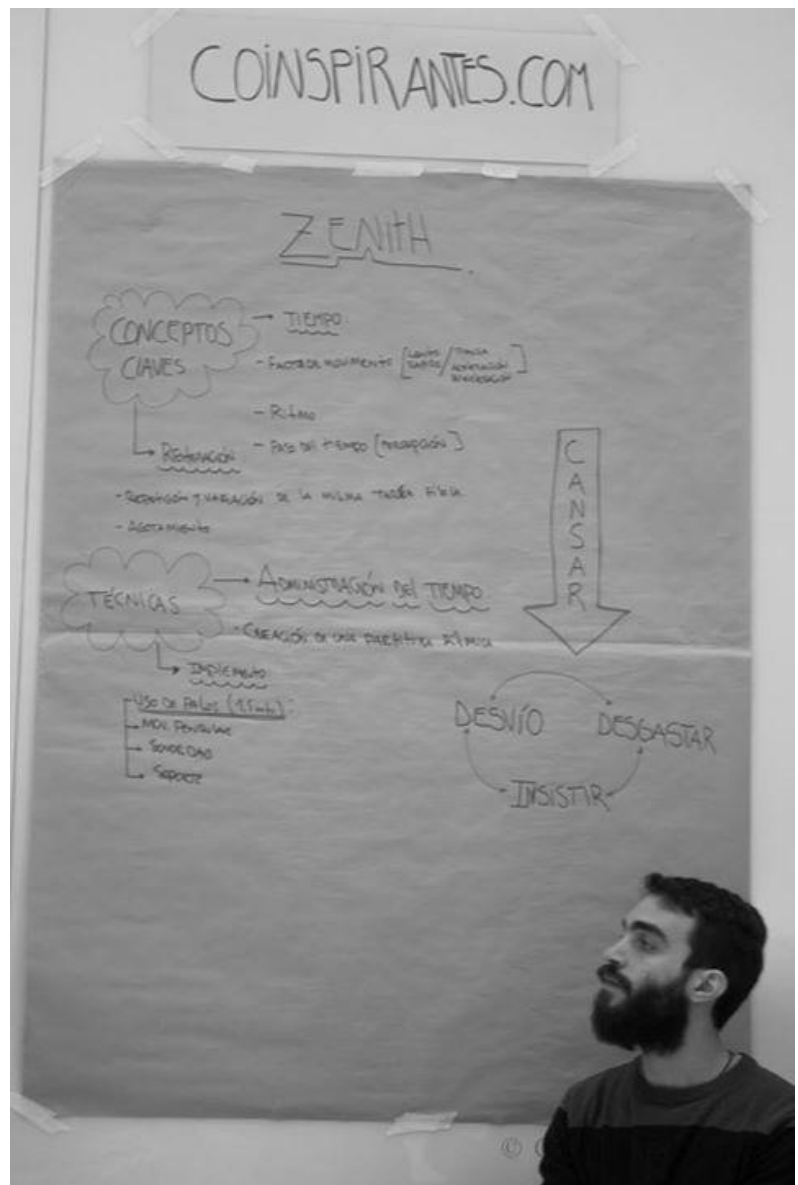 COINSPIRANTES.COM
ZENITH
CONCEPTOS CLAVES
→ TIEMPO:
- FACTOR MOVIMIENTO [LENTO
- RITMO
- PASO DEL TIEMPO [PERCEPCIÓN]
→ REITERACIÓN
- REPETICIÓN Y VARIACIÓN DE LA MISMA TAREA FÍSICA
- AGOTAMIENTO
TÉCNICAS
→ ADMINISTRACIÓN DEL TIEMPO
- CREACIÓN DE UNA PARTITURA RÍTMICA
→ IMPLEMENTO
USO DE PALOS
MOV. PENDULAR
SOPORTE
CANSAR
DESVÍO
DESGASTAR
INSISTIR
©